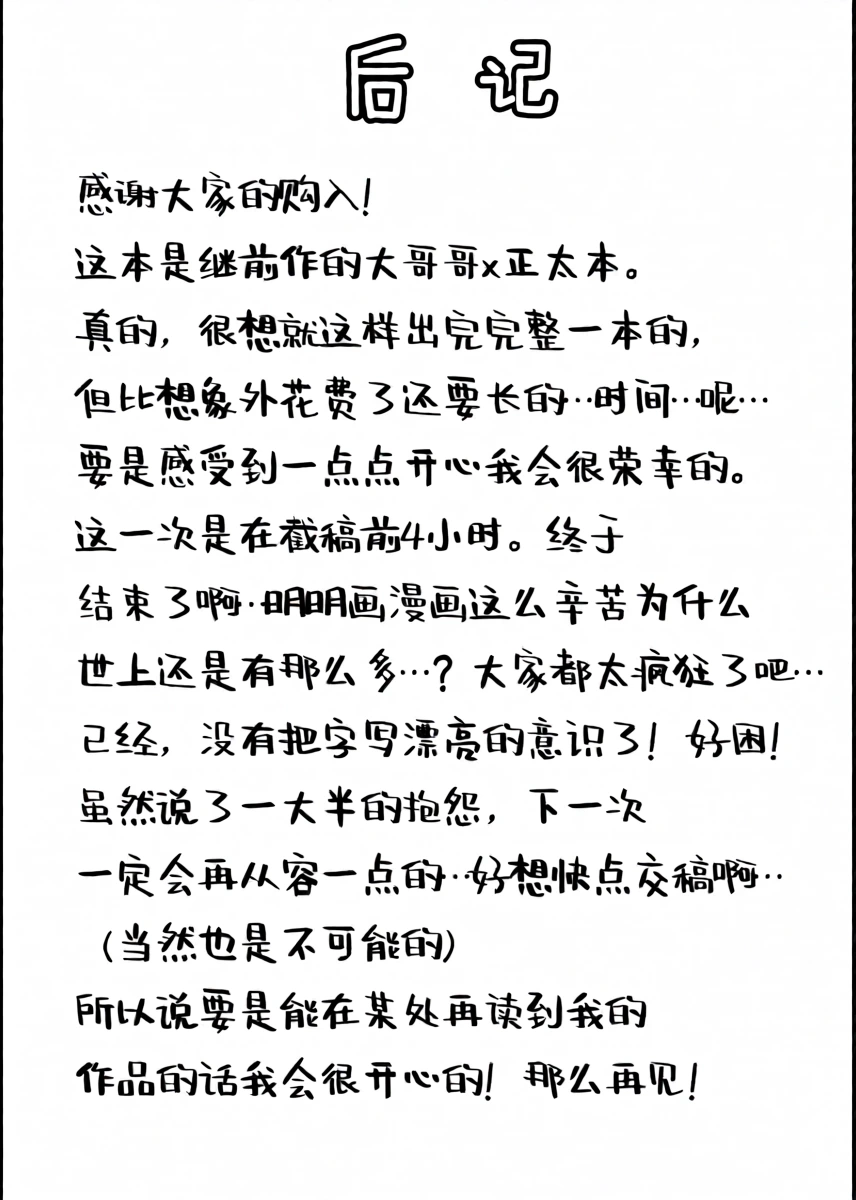 后记
感谢大家的购入！
这本是继前作的大哥哥x正太本。
真的，很想就这样出完完整一本的，
但比想象外花费了还要长的…时间…呢…
要是感受到一点点开心我会很荣幸的。
这一次是在截稿前4小时。终于
结束了啊..明明画漫画这么辛苦为什么
世上还是有那么多…？大家都太疯狂了吧…
已经，没有把字写漂亮的意识了！好困！
虽然说了一大半的抱怨，下一次
一定会再从容一点的..好想快点交稿啊..
（当然也是不可能的）
所以说要是能在某处再读到我的
作品的话我会很开心的！那么再见！